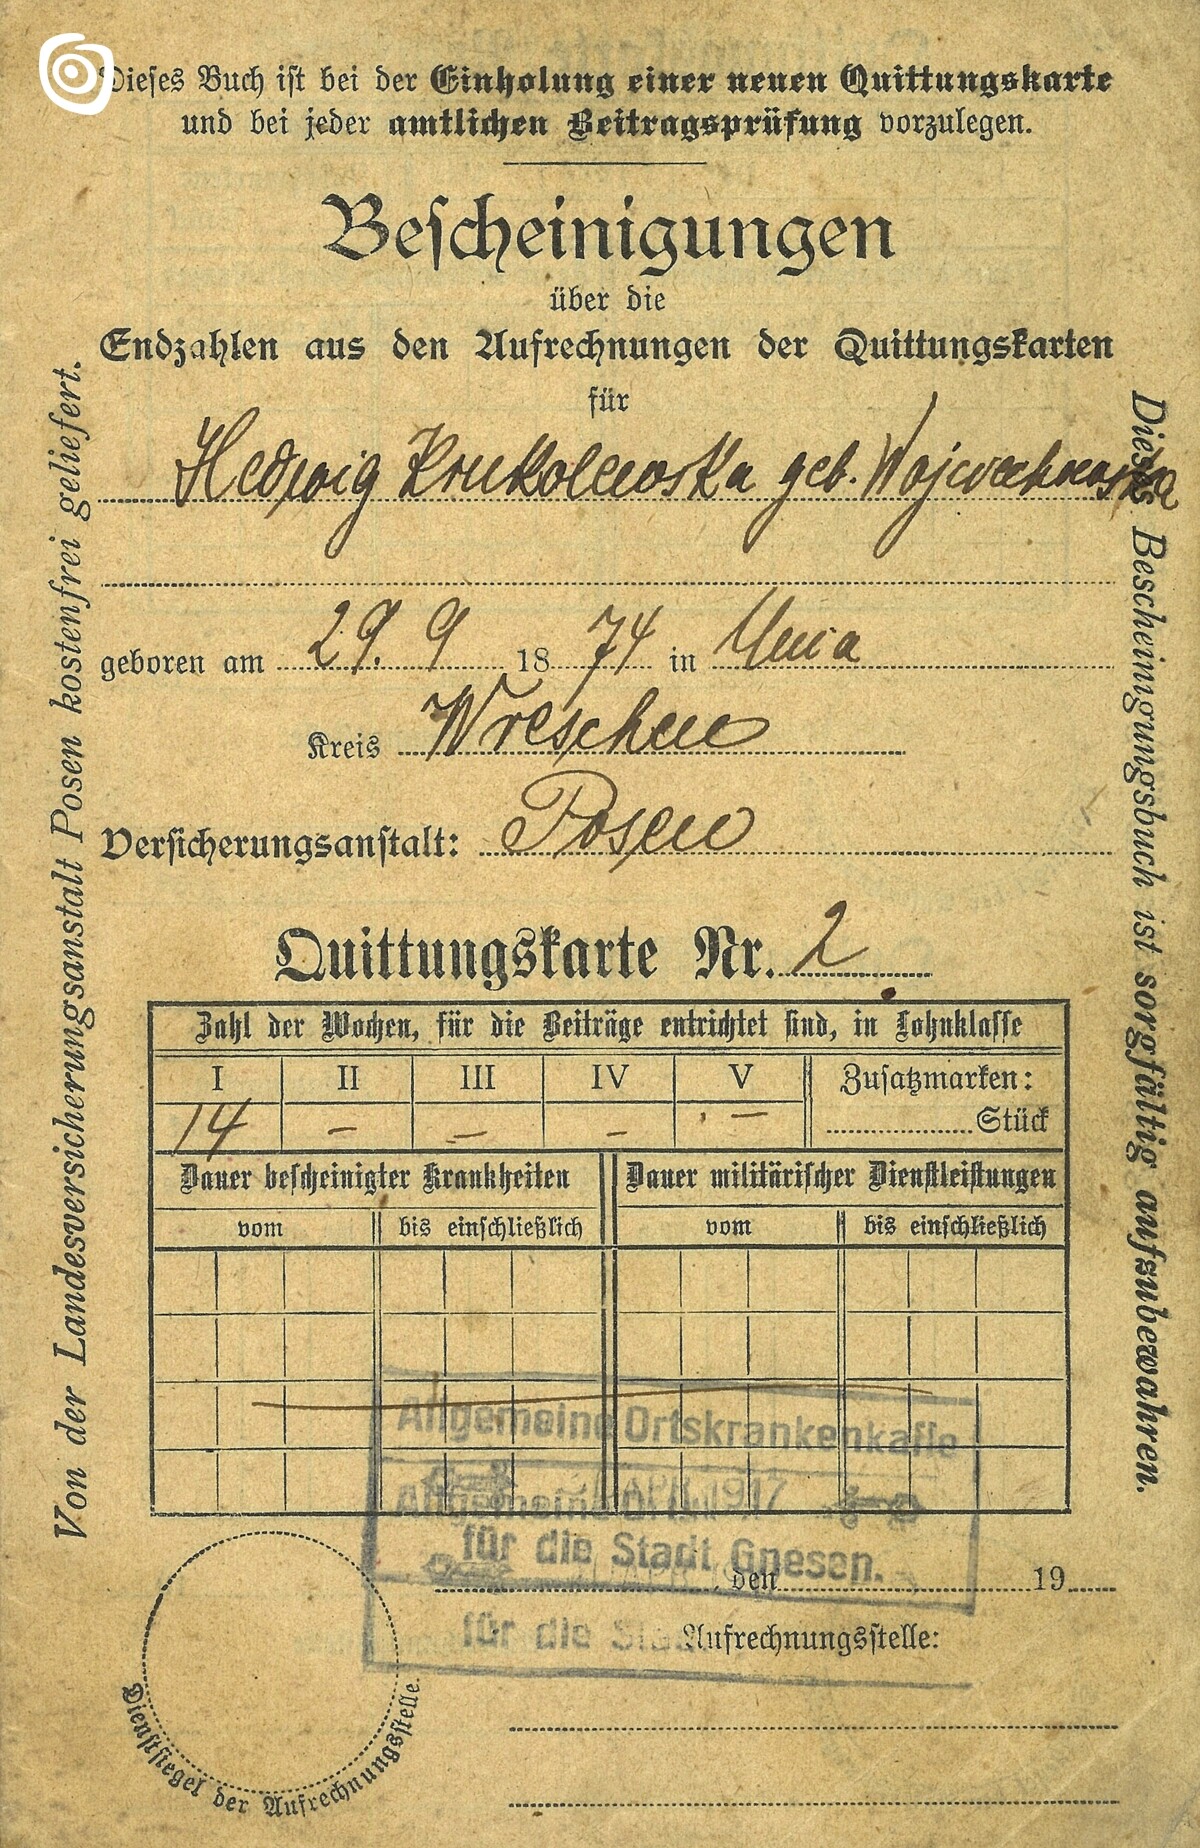 Dieses Buch ist bei der Einholung einer neuen Quittungskarte
und bei jeder amtlichen Beitragsprüfung vorzulegen.
Bescheinigungen
über die
Endzahlen aus den Aufrechnungen der Quittungskarten
für
Hedwig Krukolewska geb. Wojciechowska
geboren am 29. 9 1874 in Unia
Kreis Wreschen
Versicherungsanstalt: Posen
Quittungskarte Nr. 2
Zahl der Wochen, für die Beiträge entrichtet sind, in Lohnklasse
I II III IV V Zusatzmarken:
14 – – – – Stück
Dauer bescheinigter Krankheiten Dauer militärischer Dienstleistungen
vom bis einschließlich vom bis einschließlich
Allgemeine Ortskrankenkasse
APR. 1917
für die Stadt Gnesen.
, den 19
für die Stadt
Aufrechnungsstelle:
Dienstsiegel der Aufrechnungsstelle.
Von der Landesversicherungsanstalt Posen kostenfrei geliefert.
Dieses Bescheinigungsbuch ist sorgfältig aufzubewahren.